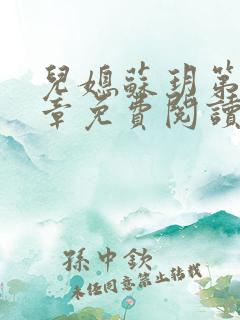 兒媳蘇玥第
章免費閱讀
孫中欽
未經同意禁止轉載